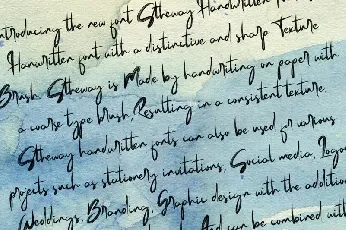 introducing the new font Sttheway Handwritten
Handwritten font with a distinctive and sharp Texture
Brush. Sttheway is Made by handwriting on paper with
a coarse type brush, Resulting in a consistent texture.
Sttheway handwritten fonts can also be used for various
projects such as stationery invitations, Social media, Logo
Weddings, Branding, Graphic design with the addition
And can be combined with